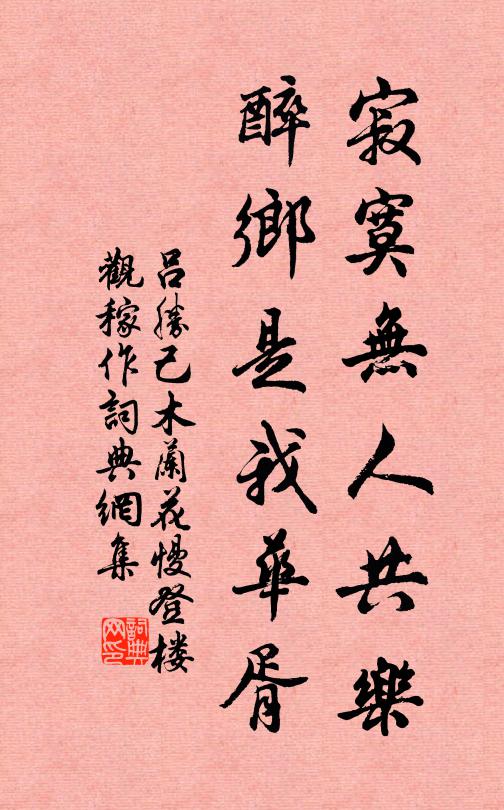 寂寞無人共樂
醉鄉是我華胥
呂勝己木蘭花慢登楼
觀稼作詞典網集
詞典网印